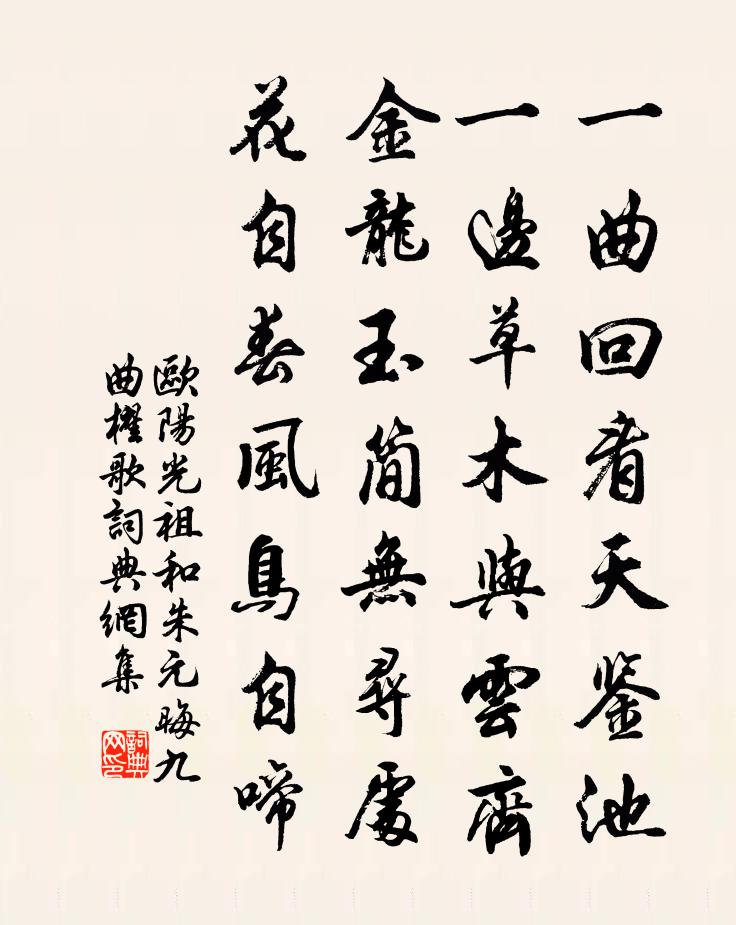 一曲回看天鉴池
一邊草木與雲齊
金龍玉简無尋處
花自春風鳥自啼
歐陽光祖和朱元晦九
曲櫂歌詞典網集
詞典网印